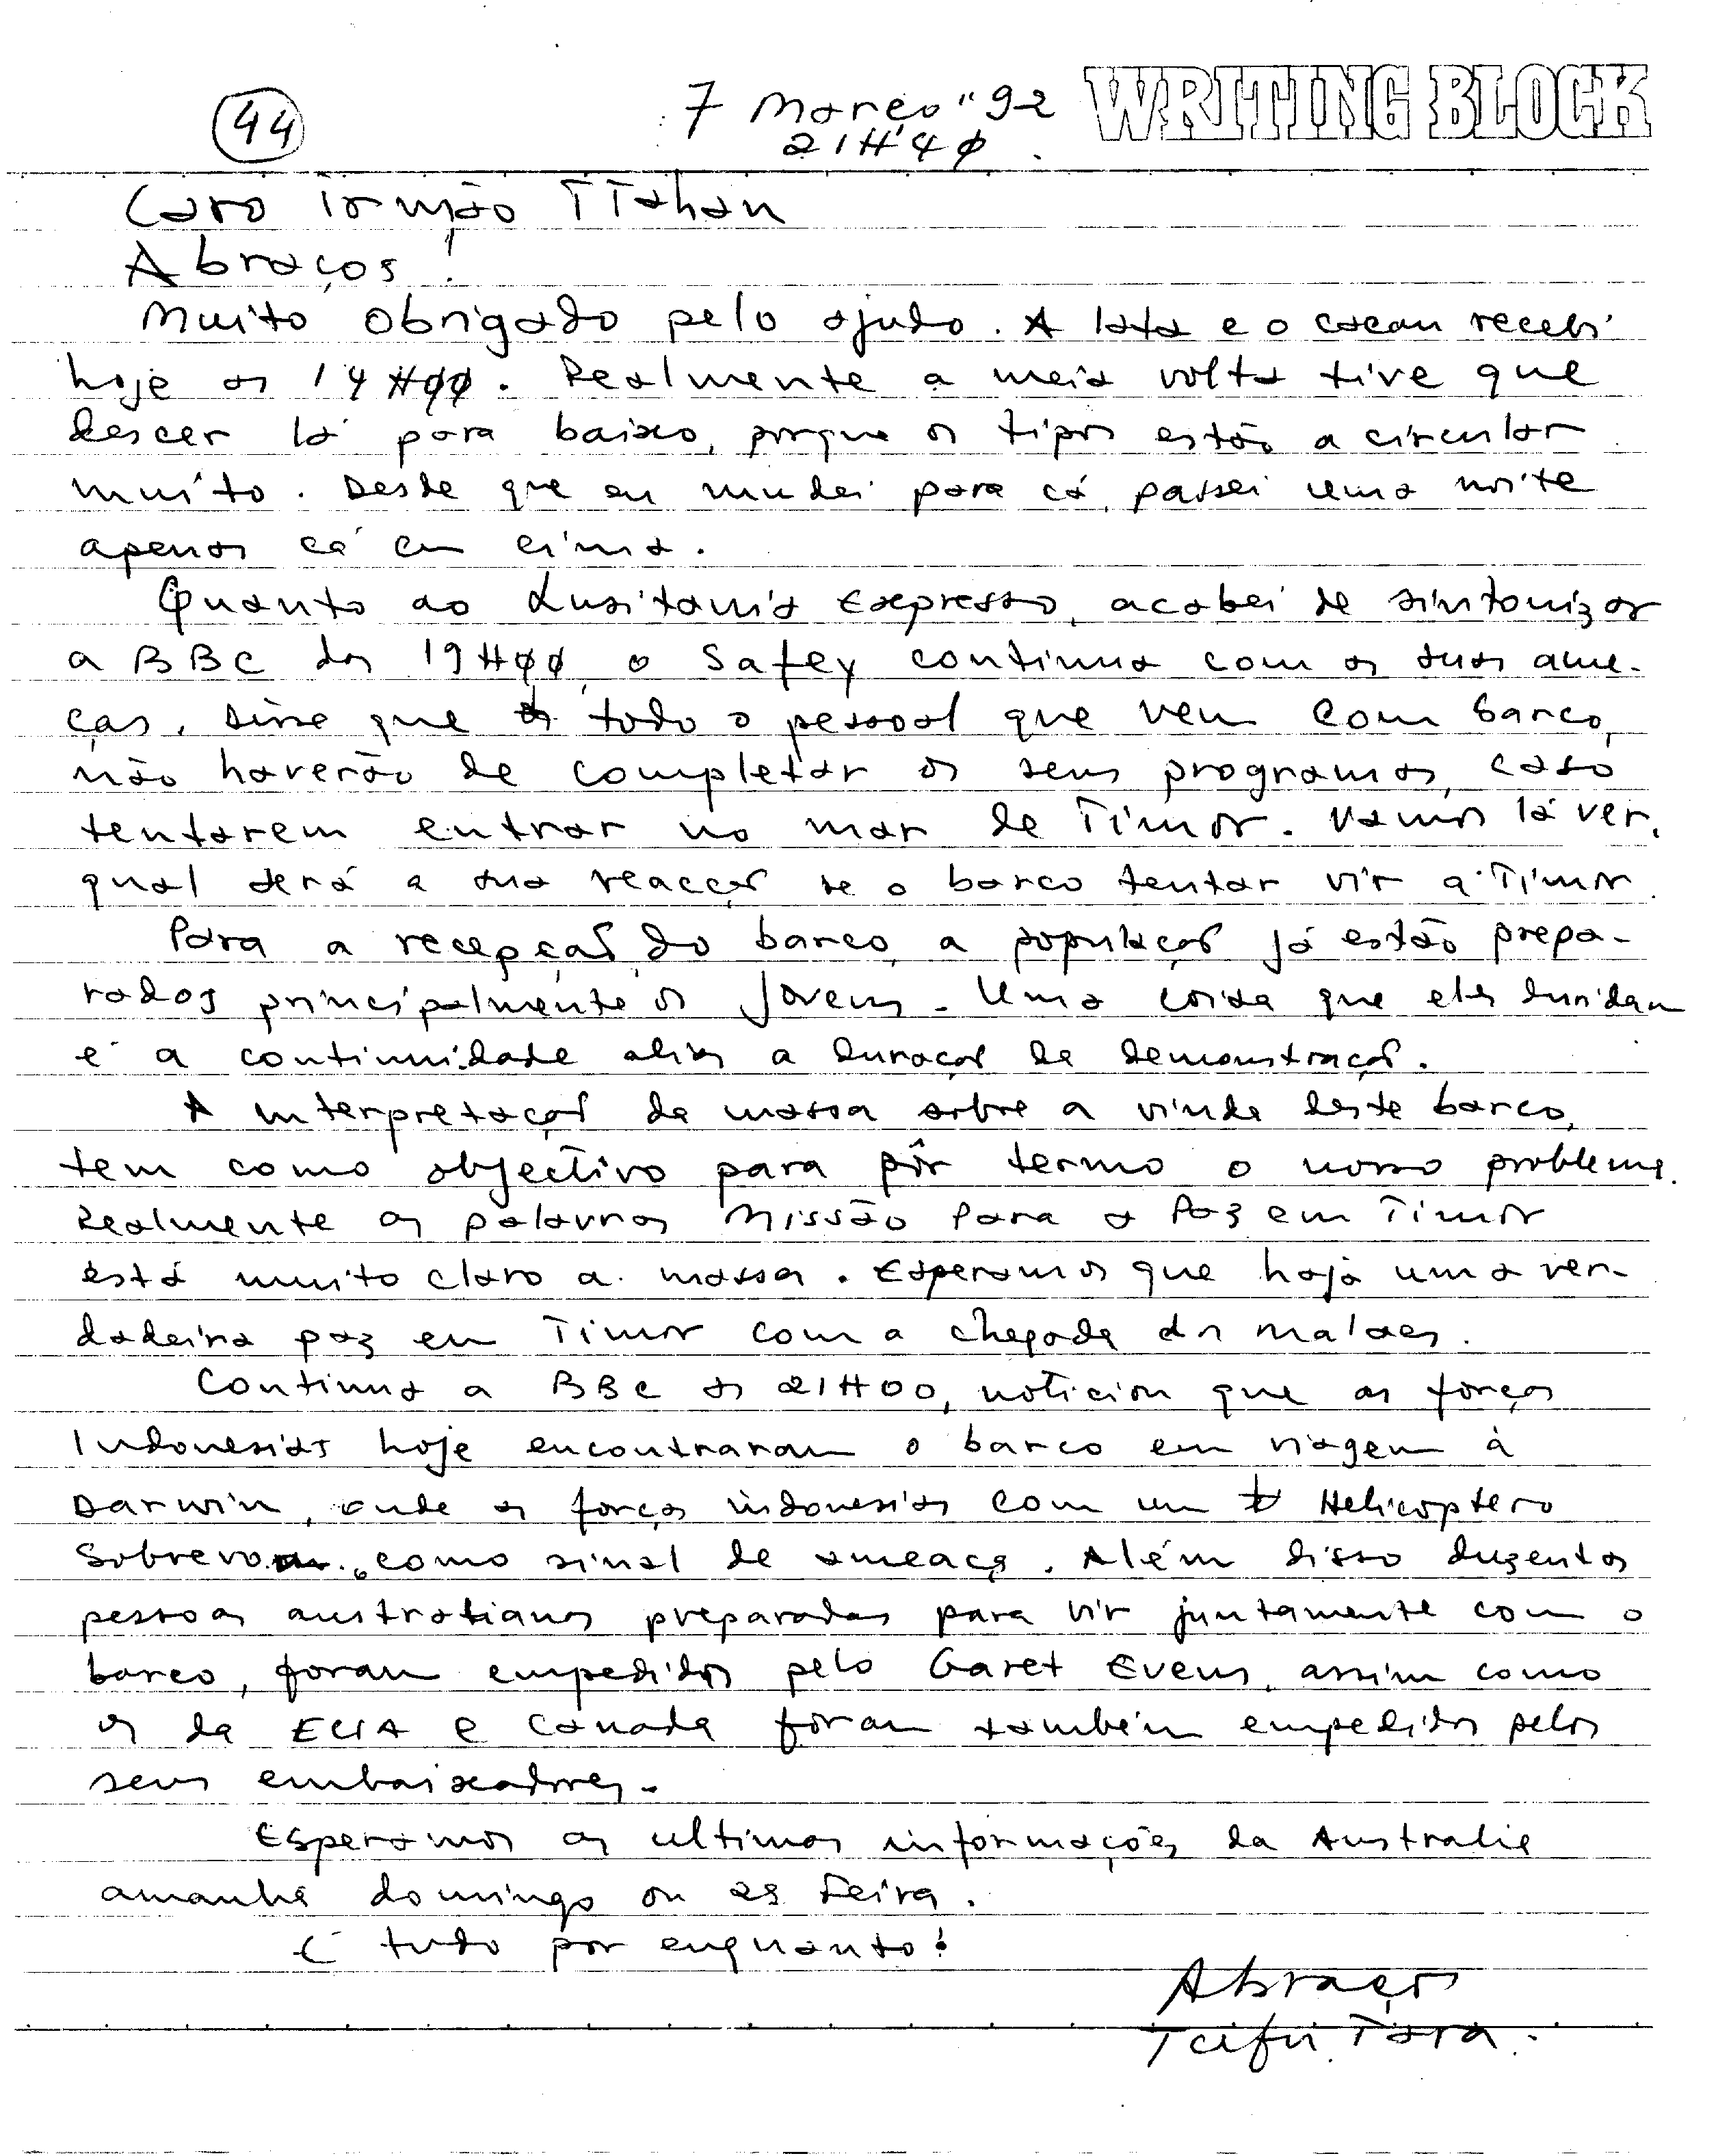 44
7 Março "92
WRITING BLOCK
21H'40
Caro Irmão TTahan
Abraços!
Muito obrigado pelo ajudo. A lata e o cacau recebi
hoje as 14H00. Realmente a meia volta tive que
descer lá para baixo, porque os tipos estão a circular
muito. Desde que eu mudei para cá, passei uma noite
apenas cá em cima.
Quanto ao Lusitania Expresso, acabei de sintonizar
a BBC das 19H00, o Safey continua com as suas ame-
ças. Disse que todo o pessoal que vem com barco,
não haverão de completar os seus programas, caso
tentarem entrar no mar de Timor. Vamos lá ver,
qual será a sua reacção se o barco tentar vir a Timor.
Para a recepção do barco, a população já estão prepa-
rados principalmente os jovens. Uma coisa que eles duvidam
é a continuidade alias a duração da demonstração.
A interpretação da massa sobre a vinda deste barco,
tem como objectivo para pôr termo o nosso problema.
Realmente as palavras Missão Para a Paz em Timor
está muito claro a massa. Esperamos que haja uma ver-
dadeira paz em Timor com a chegada dos malaes.
Continua a BBC as 21H00, noticiou que as forças
Indonesias hoje encontraram o barco em viagem à
Darwin, onde as forças indonesias com um Helicoptero
como sinal de ameaça. Além disso duzentos
pessoas australianas preparadas para vir juntamente com o
barco, foram empedidos pelo Garet Evens, assim como
os da EUA e Canada foram também empedidos pelos
seus embaixadores.
Esperamos as ultimas informações da Australia
amanhã domingo ou 2ª Feira.
É tudo por enquanto!
Abraços
Tara.